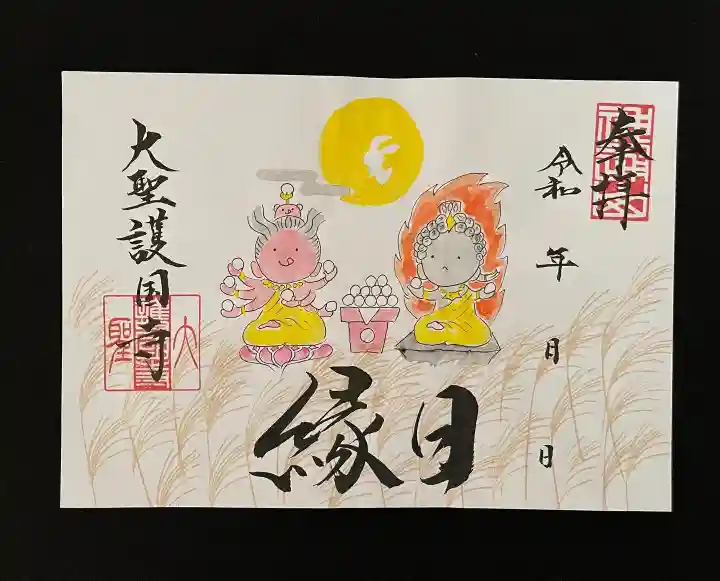 奉拝
令和 年 月 日
縁日
大聖護国寺
大聖